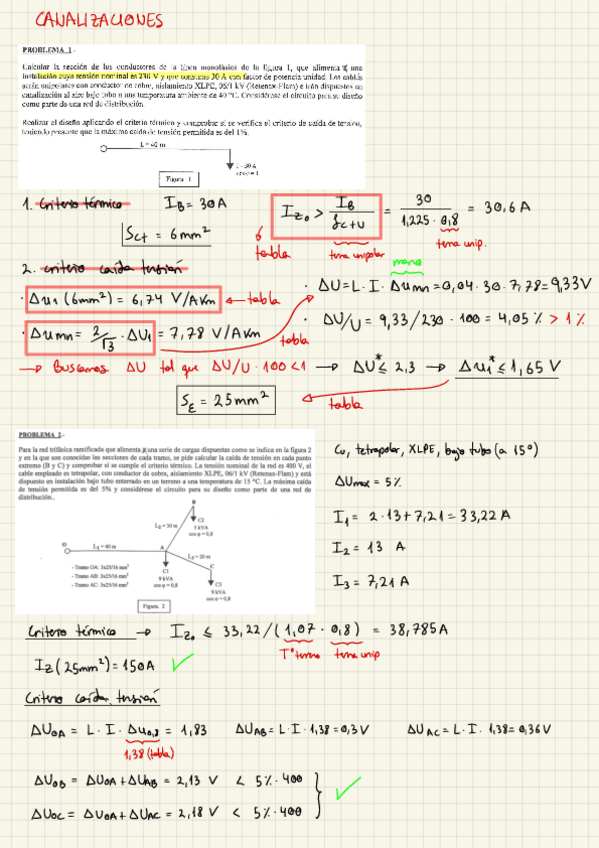 CANALIZACIONES
PROBLEMA 1.-
Calcular la sección de los conductores de la línea monofásica de la figura 1, que alimenta a una
instalación cuya tensión nominal es 230 V y que consume 30 A con factor de potencia unidad. Los cables
serán unipolares con conductor de cobre, aislamiento XLPE, 06/1 kV (Retenax-Flam) e irán dispuestos en
canalización al aire bajo tubo a una temperatura ambiente de 40 ºC. Considérese el circuito para su diseño
como parte de una red de distribución.
Realizar el diseño aplicando el criterio térmico y comprobar si se verifica el criterio de caída de tensión,
teniendo presente que la máxima caída de tensión permitida es del 1%.
L= 40 m
I = 30 A
cos φ = 1
Figura 1
1. Criterio térmico I_B = 30 A
I_Zo > I_B / f_C+U = 30 / 1,225 · 0,8 = 30,6 A
S_CT = 6 mm²
tabla
tema unipolar
tema unip.
2. criterio caída tensión
mono
· Δu1 (6mm²) = 6,74 V/AKm ← tabla
· ΔU = L · I · Δumn = 0,04 · 30 · 7,78 = 9,33V
· Δumn = 2/√3 · ΔU1 = 7,78 V/AKm
tabla
· ΔU/U = 9,33/230 · 100 = 4,05 % > 1%
→ Buscamos ΔU tal que ΔU/U · 100 < 1 → ΔU* ≤ 2,3 → Δu1* ≤ 1,65 V
S_E = 25 mm²
tabla
PROBLEMA 2.-
Para la red trifásica ramificada que alimenta a una serie de cargas dispuestas como se indica en la figura 2
y en la que son conocidas las secciones de cada tramo, se pide calcular la caída de tensión en cada punto
extremo (B y C) y comprobar si se cumple el criterio térmico. La tensión nominal de la red es 400 V, el
cable empleado es tetrapolar, con conductor de cobre, aislamiento XLPE, 06/1 kV (Retenax-Flam) y está
dispuesto en instalación bajo tubo enterrado en un terreno a una temperatura de 15 ºC. La máxima caída
de tensión permitida es del 5% y considérese el circuito para su diseño como parte de una red de
distribución.
Cu, tetrapolar, XLPE, bajo tubo (a 15º)
ΔUmax = 5%
I1 = 2 · 13 + 7,21 = 33,22 A
I2 = 13 A
I3 = 7,21 A
B
C2
9 kVA
cos φ = 0,8
L2 = 30 m
O
L1 = 40 m
A
L3 = 20 m
C
- Tramo OA: 3x25/16 mm²
- Tramo AB: 3x25/16 mm²
- Tramo AC: 3x25/16 mm²
C1
9 kVA
cos φ = 0,8
C3
9 kVA
cos φ = 0,8
Figura 2
Criterio térmico → I_Zo ≤ 33,22 / (1,07 · 0,8) = 38,785A
Tº terreno tema unip
I_Z (25mm²) = 150 A ✓
Criterio caída tensión
ΔU_OA = L · I · Δu0,8 = 1,83
ΔU_AB = L · I · 1,38 = 0,3 V
ΔU_AC = L · I · 1,38 = 0,36 V
1,38 (tabla)
ΔU_OB = ΔU_OA + ΔU_AB = 2,13 V < 5% · 400
ΔU_OC = ΔU_OA + ΔU_AC = 2,18 V < 5% · 400 ✓